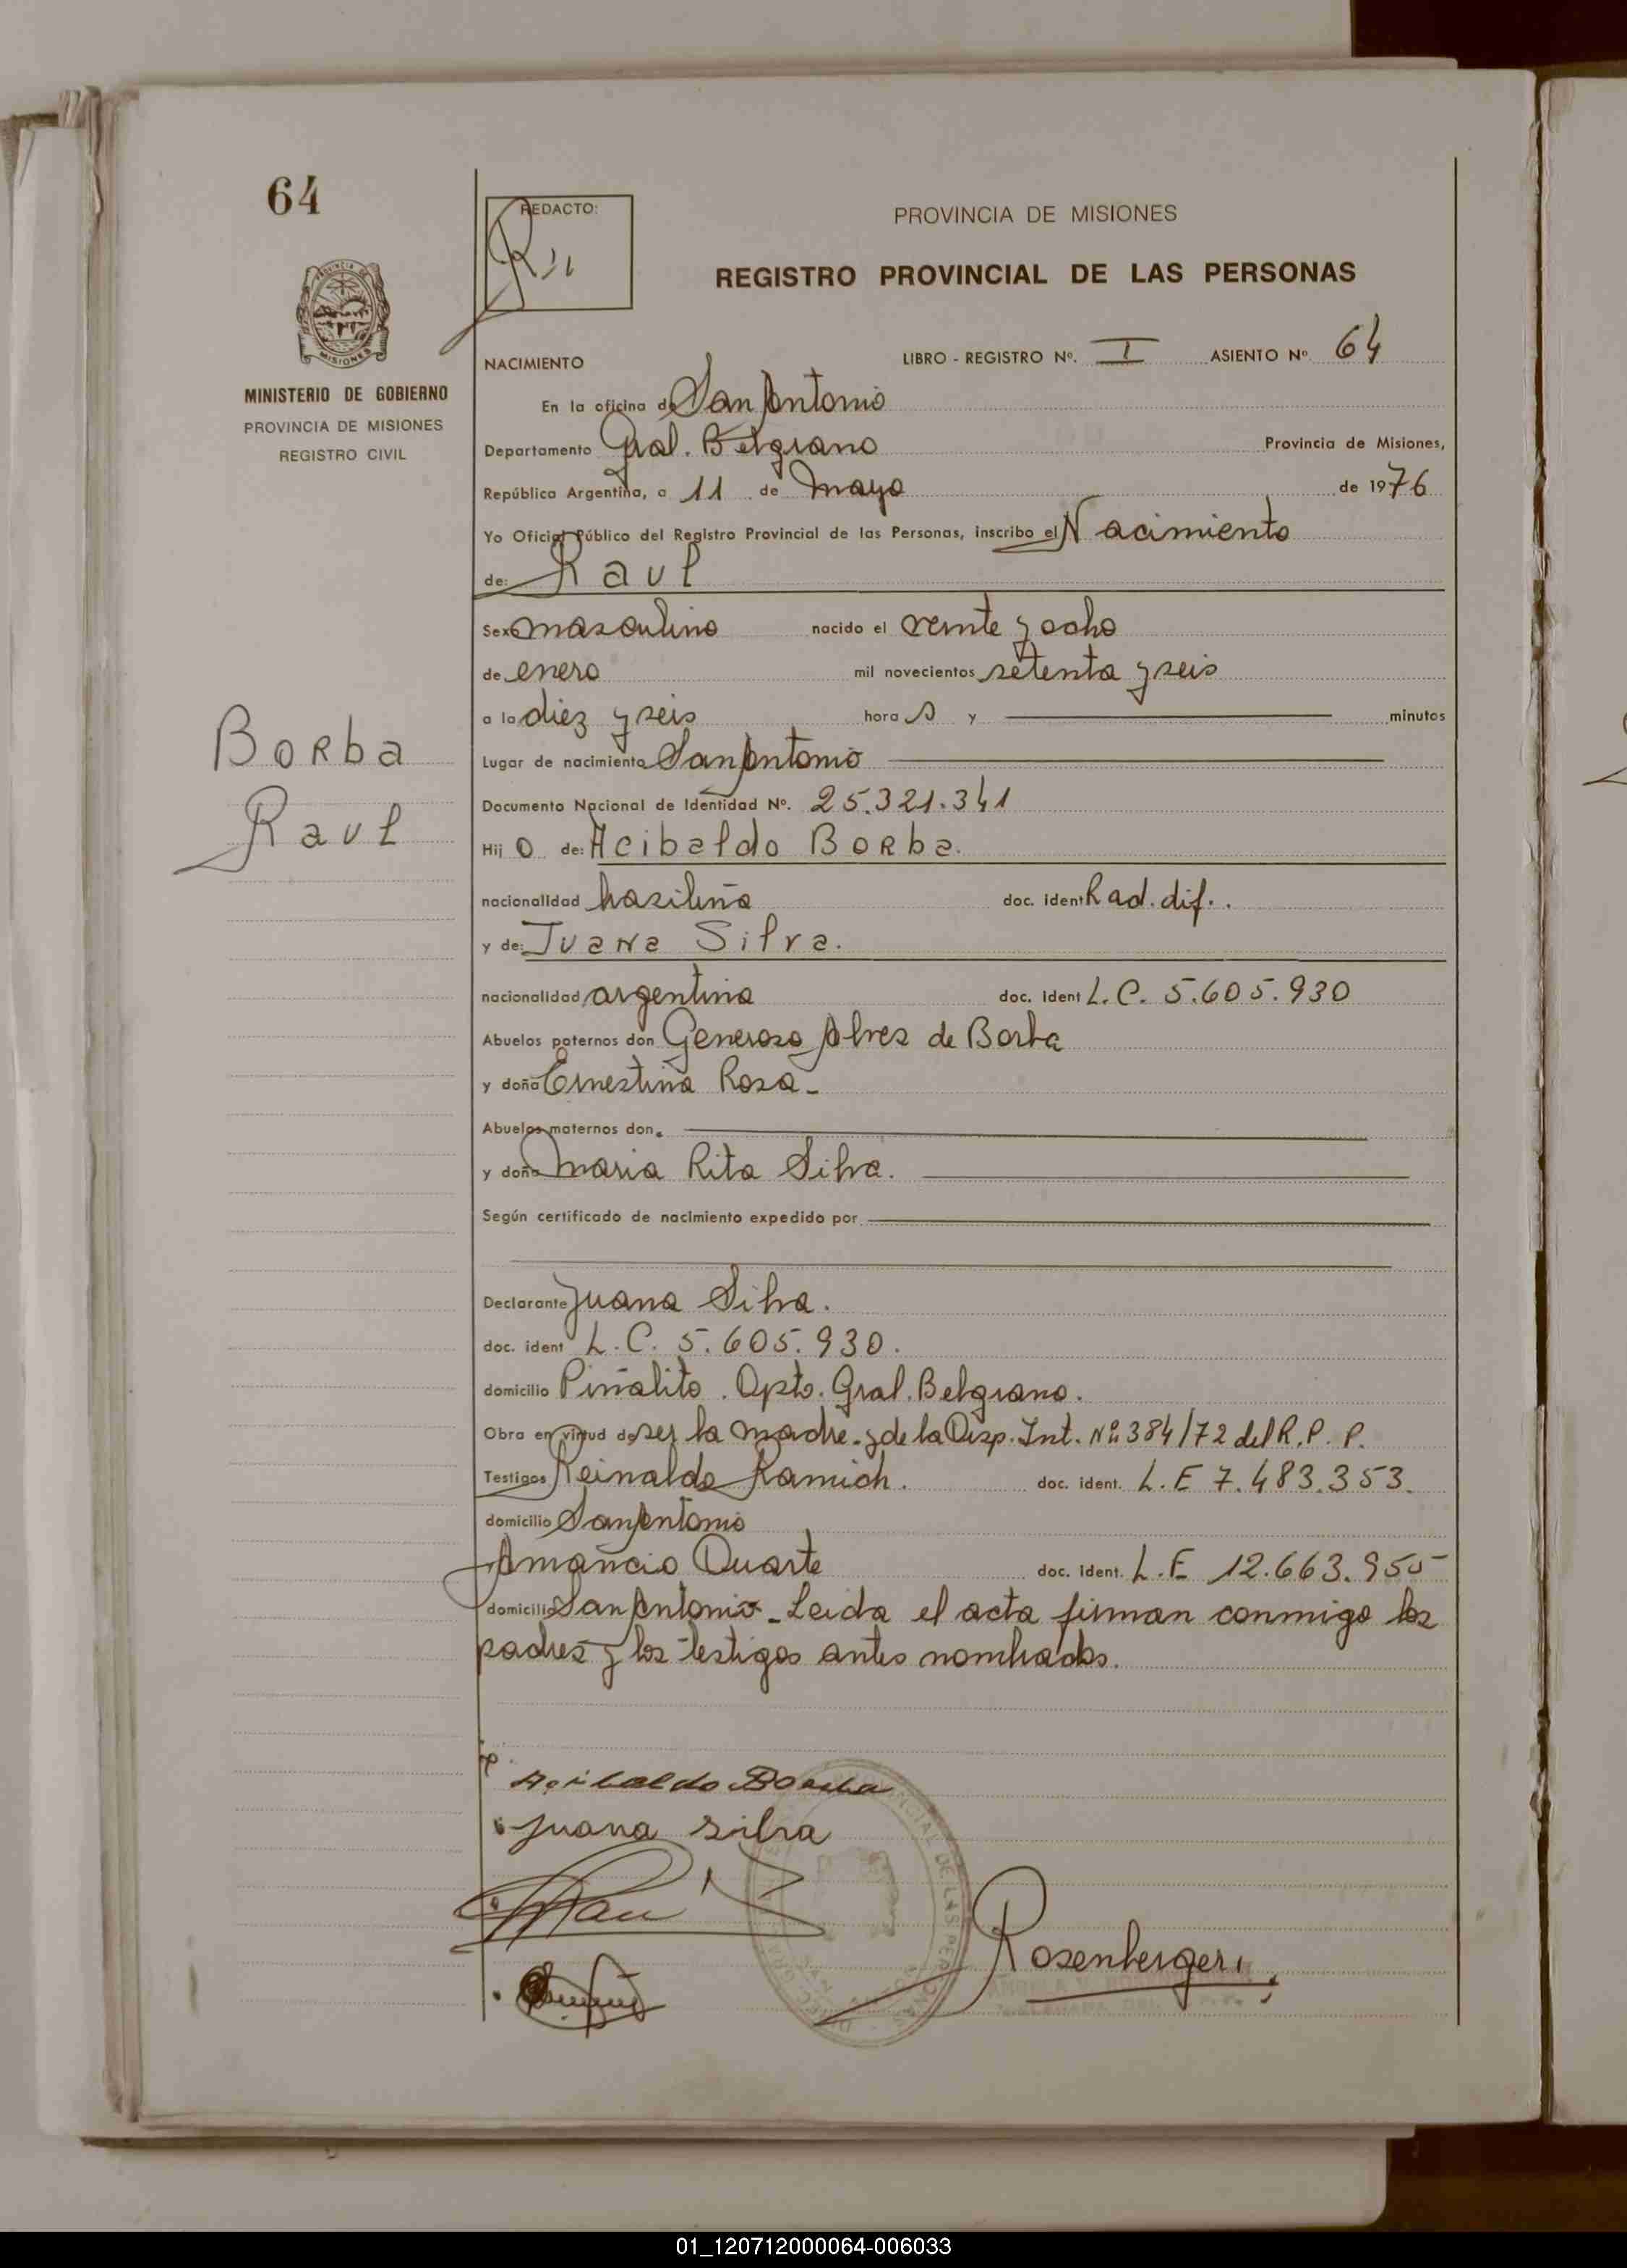 64
REDACTO:
PROVINCIA DE MISIONES
REGISTRO PROVINCIAL DE LAS PERSONAS
MISIONES
MINISTERIO DE GOBIERNO
PROVINCIA DE MISIONES
REGISTRO CIVIL
NACIMIENTO LIBRO - REGISTRO Nº. I ASIENTO Nº 64
En la oficina de San Antonio
Departamento Gral. Belgrano Provincia de Misiones,
República Argentina, a 11 de mayo de 1976
Yo Oficial Público del Registro Provincial de las Personas, inscribo el Nacimiento
de: Raul
Sexo masculino nacido el veinte y ocho
de enero mil novecientos setenta y seis
a la diez y seis hora s y minutos
Borba
Raul
Lugar de nacimiento San Antonio
Documento Nacional de Identidad Nº. 25.321.341
Hij o de: Acibaldo Borba.
nacionalidad brasileña doc. ident Rad. dif..
y de: Juana Silva.
nacionalidad argentina doc. ident L.C. 5.605.930
Abuelos paternos don Generoso Alves de Borba
y doña Ernestina Rosa -
Abuelos maternos don.
y doña Maria Rita Silva.
Según certificado de nacimiento expedido por
Declarante Juana Silva.
doc. ident L.C. 5.605.930.
domicilio Piñalito. Dpto. Gral. Belgrano.
Obra en virtud de ser la madre. y de la Disp. Int. Nº 384/72 del R.P.P.
Testigos Reinaldo Ramich. doc. ident. L.E 7.483.353.
domicilio San Antonio
Amancio Duarte doc. ident. L.E 12.663.955
domicilio San Antonio - Leida el acta firman conmigo los
padres y los testigos antes nombrados.
Acibaldo Borba
Juana Silva
Rosenberger
01_120712000064-006033